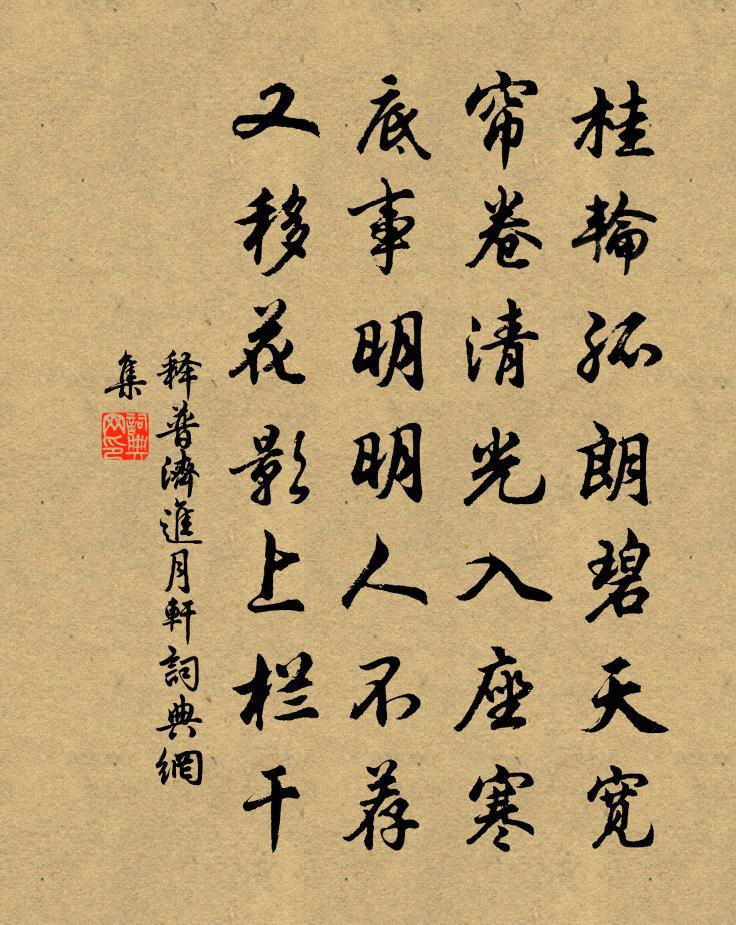 桂輪孤朗碧天寬
帘卷清光入座寒
底事明明人不荐
又移花影上栏干
释普濟進月軒詞典網
集
詞典網印